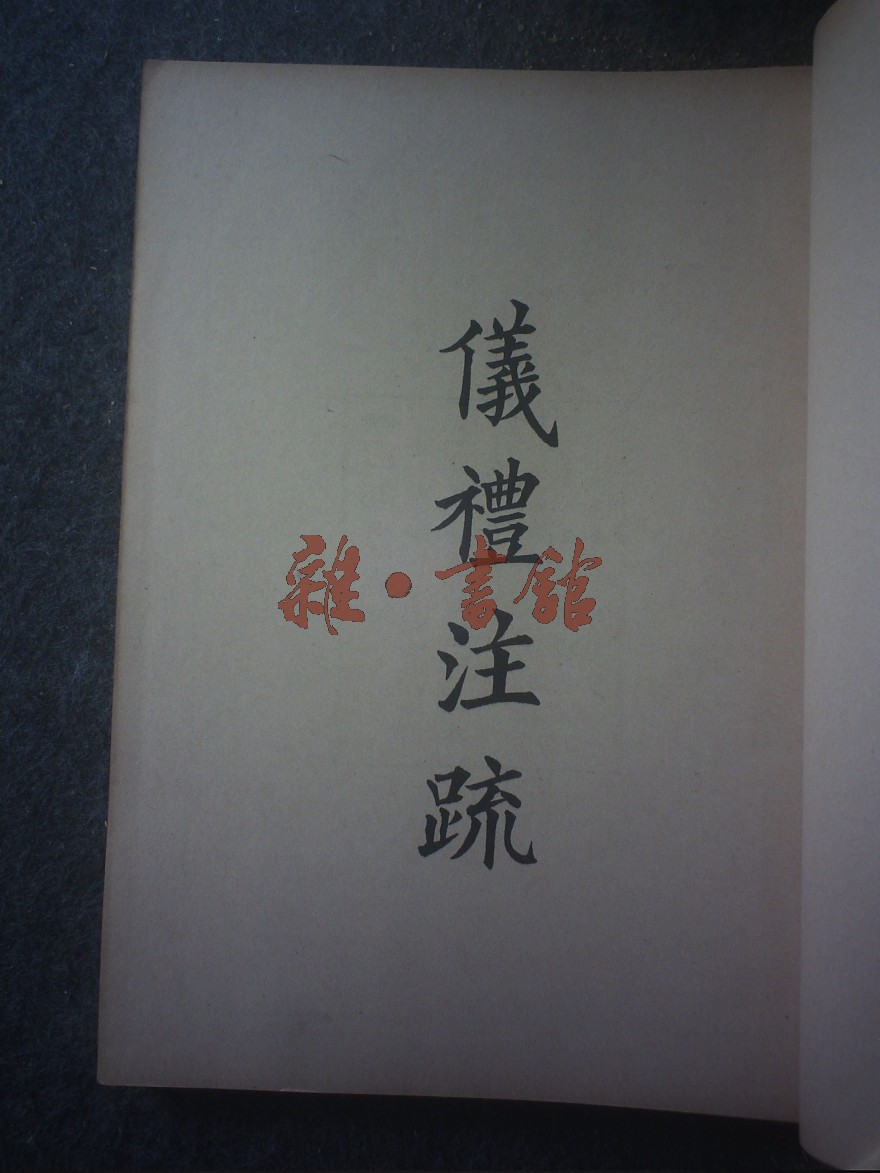 儀禮注疏
雜·書館